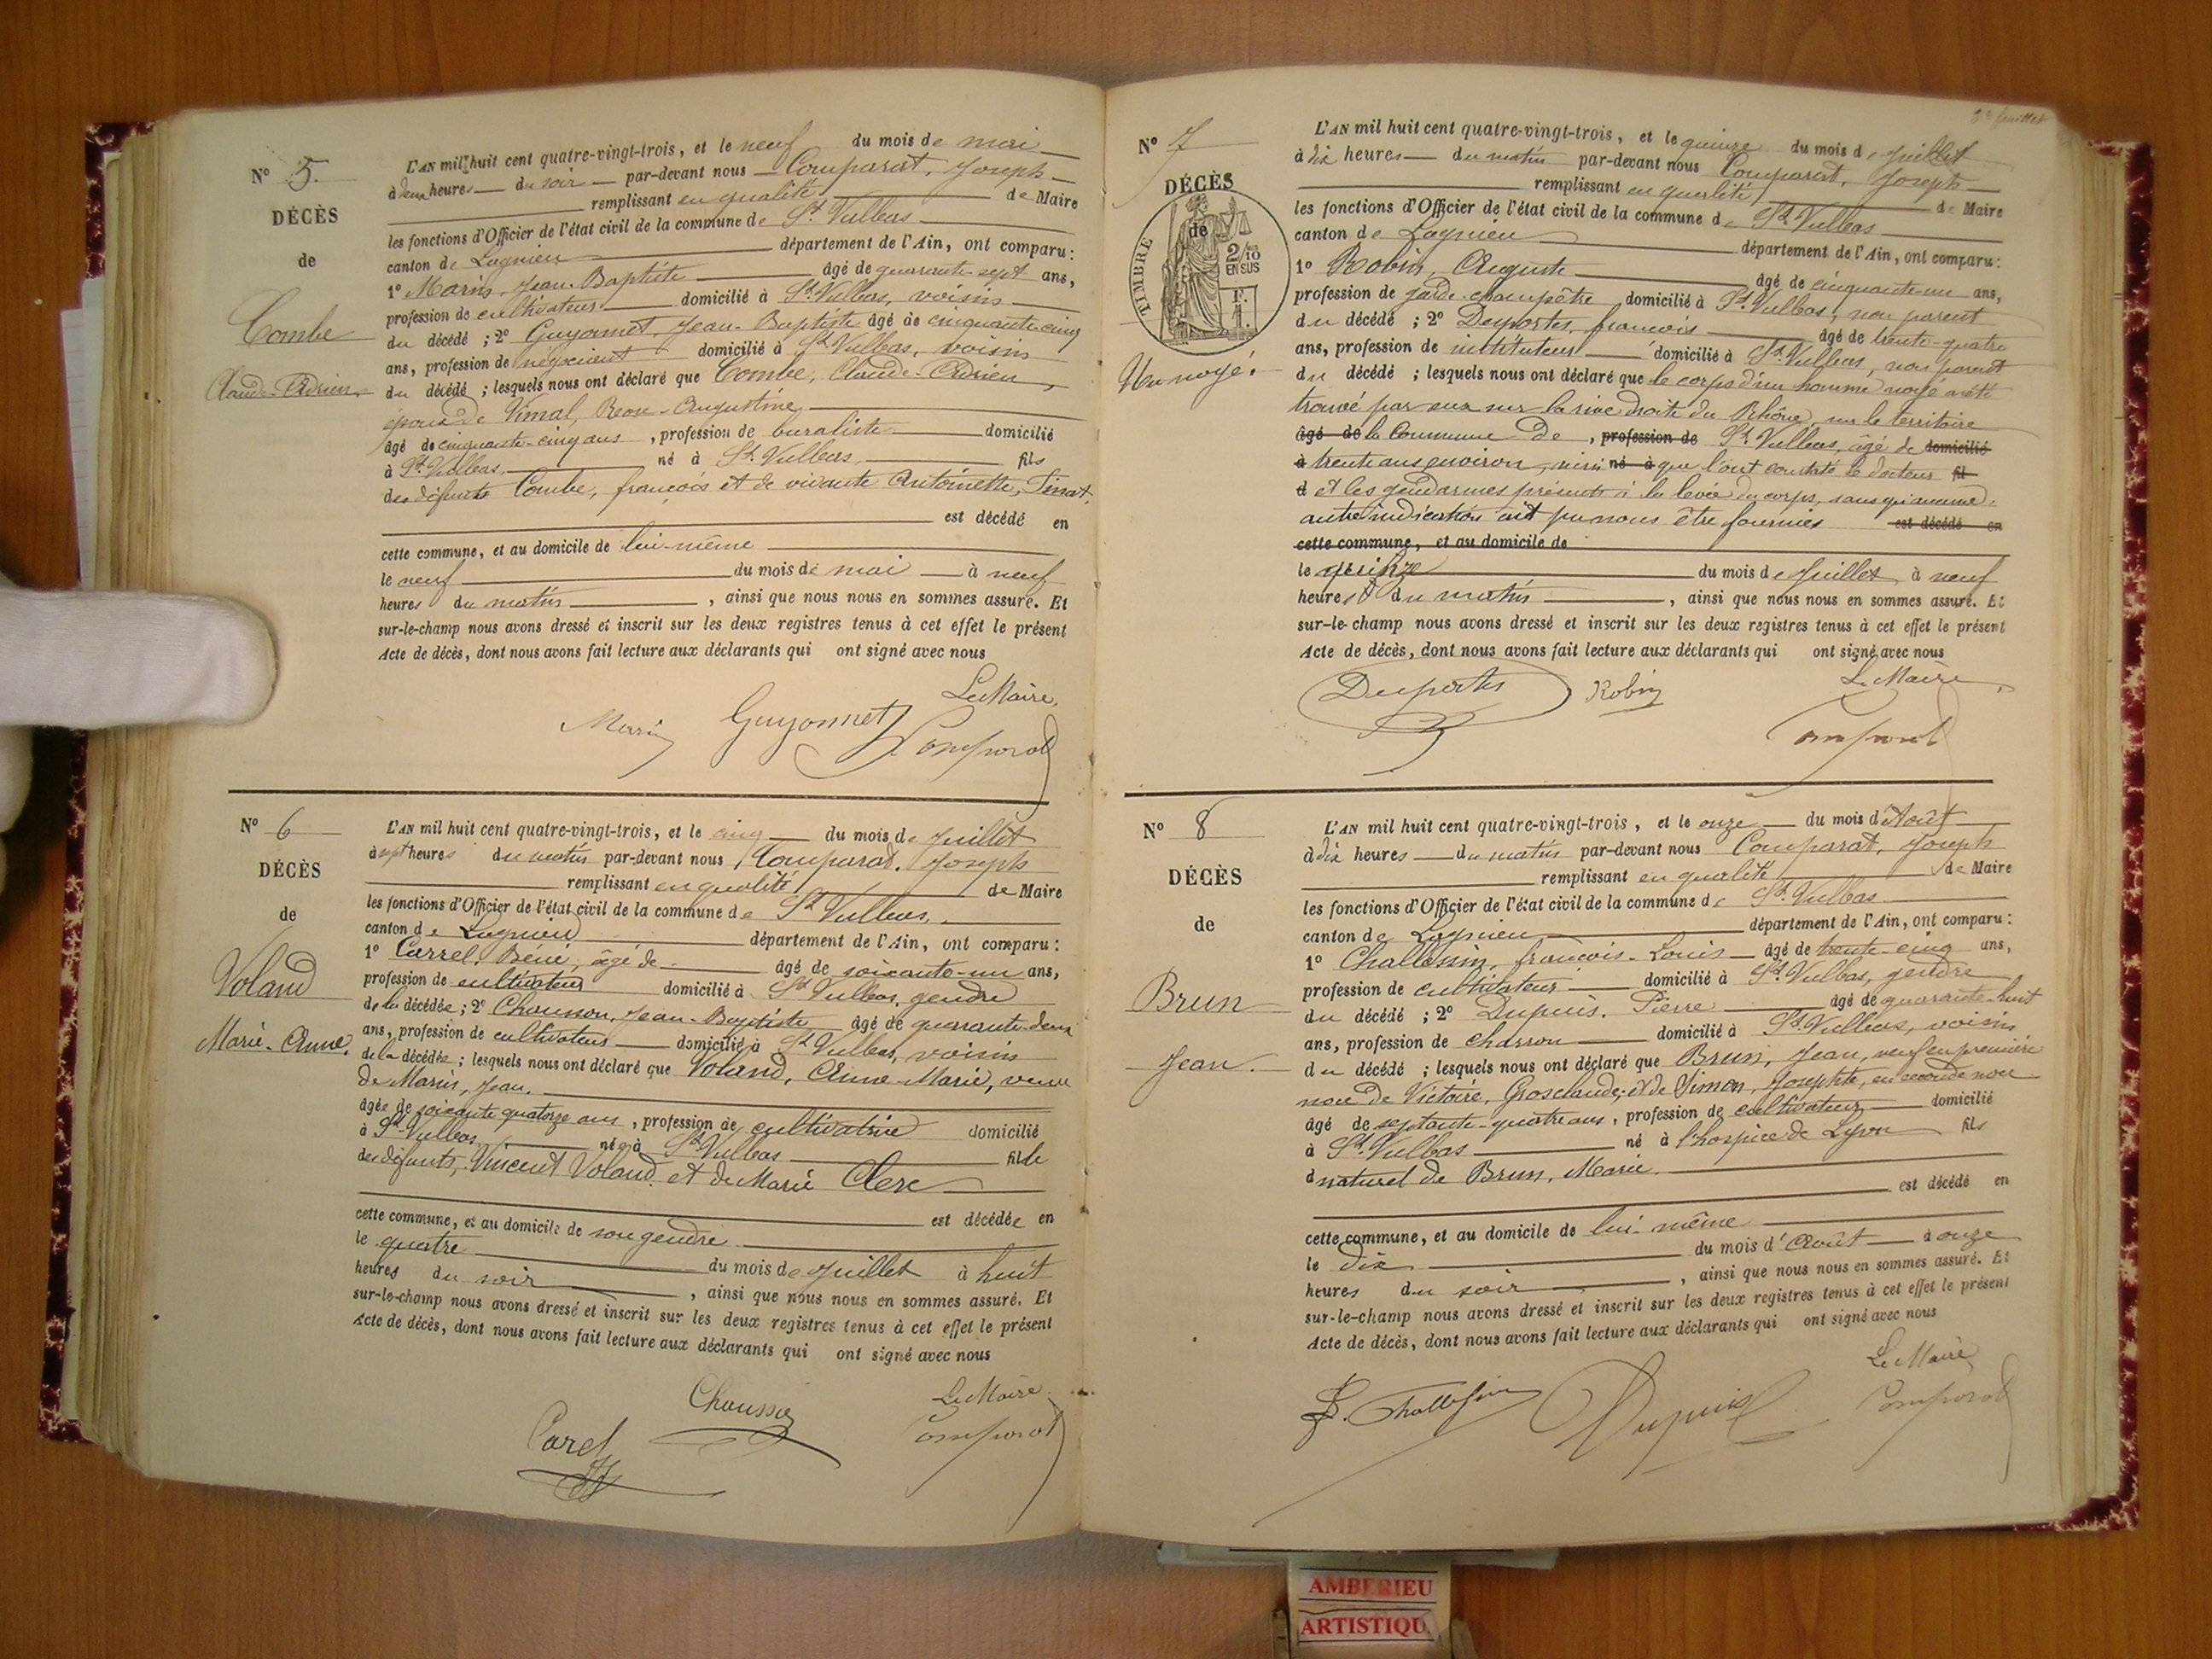 N° 5.
DÉCÈS
de
Combe
Claude-Adrien
L'AN mil huit cent quatre-vingt-trois, et le neuf du mois de mai
à deux heures du soir par-devant nous Comparat, Joseph
remplissant en qualité de Maire
les fonctions d'Officier de l'état civil de la commune de St Vulbas
canton de Lagnieu département de l'Ain, ont comparu :
1° Marin, Jean-Baptiste âgé de quarante-sept ans,
profession de cultivateur domicilié à St Vulbas, voisin
du décédé ; 2° Guyonnet, Jean-Baptiste âgé de cinquante-cinq
ans, profession de négociant domicilié à St Vulbas, voisin
du décédé ; lesquels nous ont déclaré que Combe, Claude-Adrien,
époux de Vimal, Augustine
âgé de cinquante-cinq ans, profession de buraliste domicilié
à St Vulbas, né à St Vulbas, fils
des défunts Combe, françois et de vivante Antoinette,
est décédé en
cette commune, et au domicile de lui-même
le neuf du mois de mai à neuf
heures du matin, ainsi que nous nous en sommes assuré. Et
sur-le-champ nous avons dressé et inscrit sur les deux registres tenus à cet effet le présent
Acte de décès, dont nous avons fait lecture aux déclarants qui ont signé avec nous
Le Maire,
Marin Guyonnet Comparat
N° 6
DÉCÈS
de
Voland
Marie-Anne.
L'AN mil huit cent quatre-vingt-trois, et le cinq du mois de Juillet
à sept heures du matin par-devant nous Comparat, Joseph
remplissant en qualité de Maire
les fonctions d'Officier de l'état civil de la commune de St Vulbas,
canton de Lagnieu département de l'Ain, ont comparu :
1° Carrel, Béné, âgé de âgé de soixante-un ans,
profession de cultivateur domicilié à St Vulbas, gendre
de la décédée ; 2° Chausson, Jean-Baptiste âgé de quarante-deux
ans, profession de cultivateur domicilié à St Vulbas, voisin
de la décédée ; lesquels nous ont déclaré que Voland, Anne-Marie, veuve
de Marin, Jean,
âgée de soixante quatorze ans, profession de cultivatrice domicilié
à St Vulbas, née à St Vulbas fille
des défunts, Vincent Voland et de Marie Clerc
est décédée en
cette commune, et au domicile de son gendre
le quatre du mois de Juillet à huit
heures du soir, ainsi que nous nous en sommes assuré. Et
sur-le-champ nous avons dressé et inscrit sur les deux registres tenus à cet effet le présent
Acte de décès, dont nous avons fait lecture aux déclarants qui ont signé avec nous
Le Maire
Carel Chausson Comparat
2e feuillet
N° 7
DÉCÈS
de
TIMBRE
2/10
EN SUS
Un noyé.
L'AN mil huit cent quatre-vingt-trois, et le quinze du mois de Juillet
à dix heures du matin par-devant nous Comparat, Joseph
remplissant en qualité de Maire
les fonctions d'Officier de l'état civil de la commune de St Vulbas
canton de Lagnieu département de l'Ain, ont comparu :
1° Robin, Auguste âgé de cinquante-un ans,
profession de garde-champêtre domicilié à St Vulbas, non parent
du décédé ; 2° Desportes, françois âgé de trente-quatre
ans, profession de instituteur domicilié à St Vulbas, non parent
du décédé ; lesquels nous ont déclaré que le corps d'un homme noyé a été
trouvé par eux sur la rive droite du Rhône, sur le territoire
âgé de la Commune de, profession de St Vulbas, âgé de domicilié
à trente ans environ, ainsi né à que l'ont constaté le docteur fil
d et les gendarmes présents à la levée du corps, sans qu'aucune
autre indication ait pu nous être fournies est décédé en
cette commune, et au domicile de
le quinze du mois de Juillet à neuf
heures du matin, ainsi que nous nous en sommes assuré. Et
sur-le-champ nous avons dressé et inscrit sur les deux registres tenus à cet effet le présent
Acte de décès, dont nous avons fait lecture aux déclarants qui ont signé avec nous
Le Maire,
Desportes Robin Comparat
N° 8
DÉCÈS
de
Brun
Jean.
L'AN mil huit cent quatre-vingt-trois, et le onze du mois d'Août
à dix heures du matin par-devant nous Comparat, Joseph
remplissant en qualité de Maire
les fonctions d'Officier de l'état civil de la commune de St Vulbas
canton de Lagnieu département de l'Ain, ont comparu :
1° Challesin, françois-Louis âgé de trente-cinq ans,
profession de cultivateur domicilié à St Vulbas, gendre
du décédé ; 2° Dupuis, Pierre âgé de quarante-huit
ans, profession de charron domicilié à St Vulbas, voisin
du décédé ; lesquels nous ont déclaré que Brun, Jean, veuf en première
noce de Victoire, Grosclaude, et de Simon, Josephte, en seconde noce
âgé de septante-quatre ans, profession de cultivateur domicilié
à St Vulbas né à l'hospice de Lyon fils
d naturel de Brun, Marie.
est décédé en
cette commune, et au domicile de lui-même
le dix du mois d'Août à onze
heures du soir, ainsi que nous nous en sommes assuré. Et
sur-le-champ nous avons dressé et inscrit sur les deux registres tenus à cet effet le présent
Acte de décès, dont nous avons fait lecture aux déclarants qui ont signé avec nous
Le Maire
Challesin Dupuis Comparat
AMBERIEU
ARTISTIQU